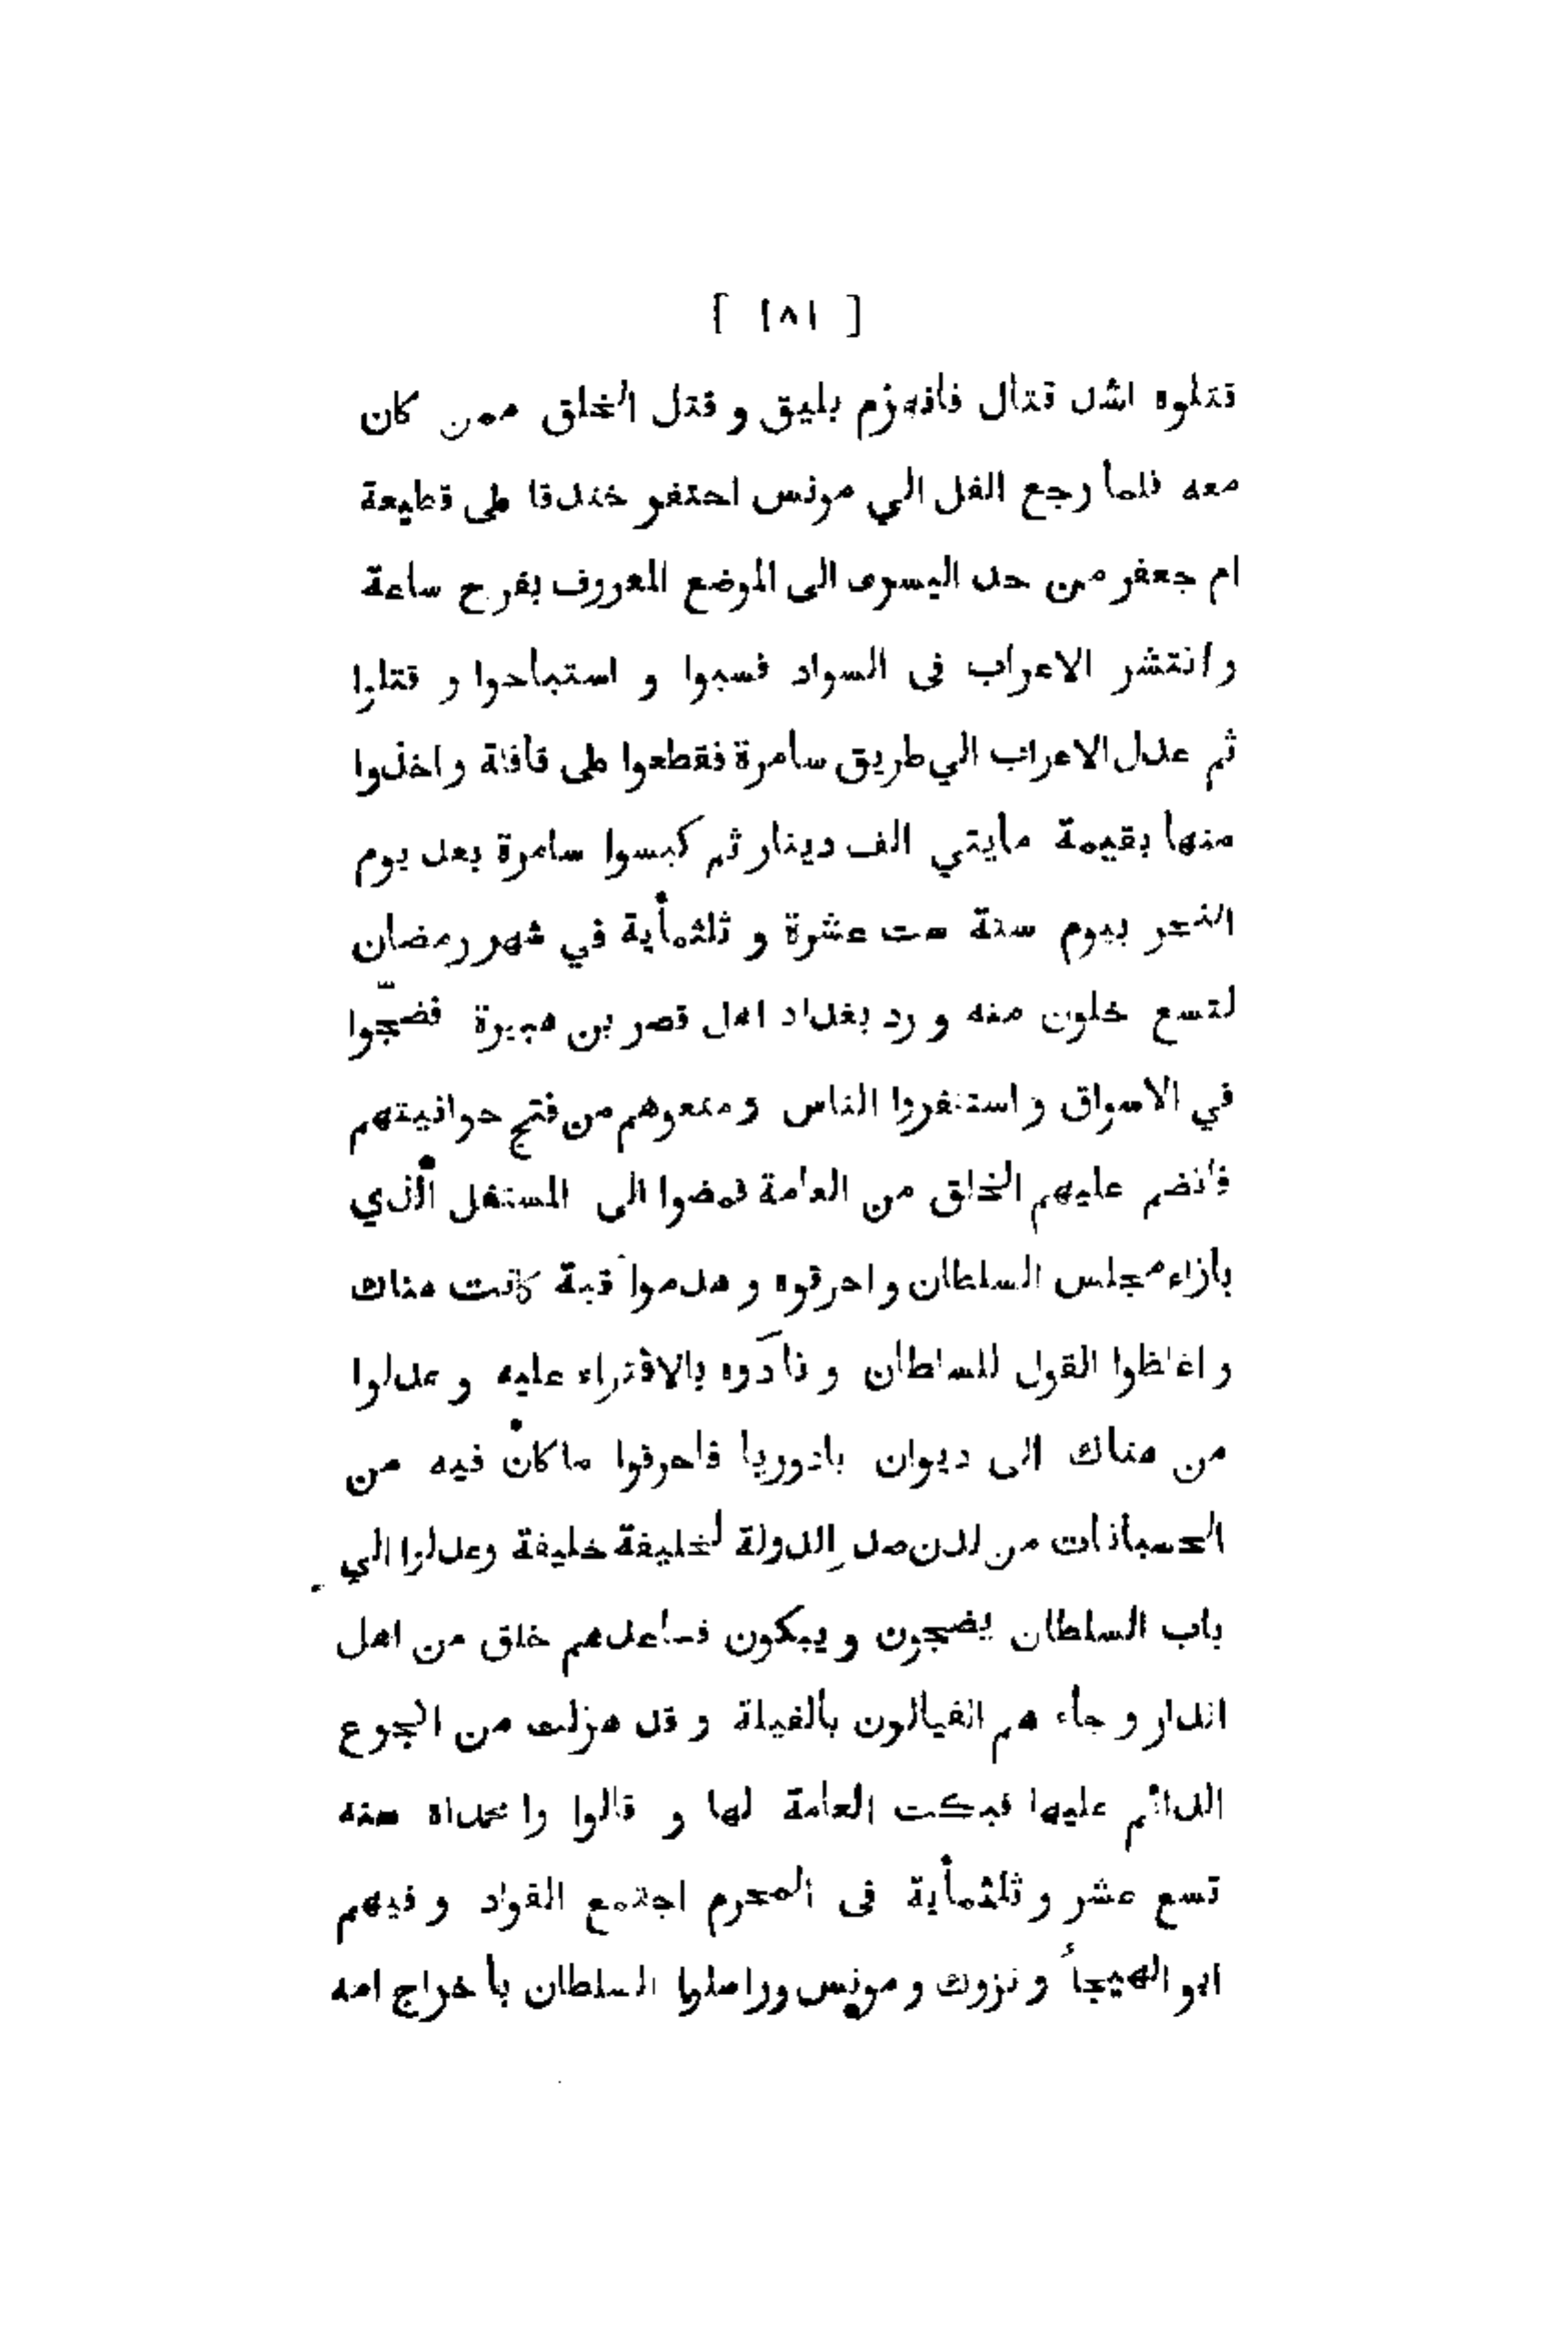 [ ١٨١ ]
قتلوه اشد قتال فانهزم بليق و قتل الخلق ممن كان
معه فلما رجع الفل الي مونس احتفر خندقا على قطيعة
ام جعفر من حد اليسرى الى الموضع المعروف بفرج ساعة
وانتشر الاعراب فى السواد فسبوا و استباحوا و قتلوا
ثم عدل الاعراب الي طريق سامرة فقطعوا على قافلة و اخذوا
منها بقيمة مايتي الف دينار ثم كبسوا سامرة بعد يوم
النحر بيوم سنة ست عشرة و ثلثمأية في شهر رمضان
لتسع خلون منه و رد بغداد اهل قصر بن هبيرة فضجّوا
في الاسواق و استنفروا الناس و منعوهم من فتح حوانيتهم
فانضم عليهم الخلق من العامة فمضوا الى المستغل الذي
بازاء مجلس السلطان و احرقوه و هدموا قبة كانت هناك
و اغلظوا القول للسلطان و نادوه بالافتراء عليه و عدلوا
من هناك الى ديوان بادوريا فاحرقوا ما كان فيه من
الحسبانات من لدن صدر الدولة لخليفة خليفة وعدلوا الي
باب السلطان يضجون و يبكون فساعدهم خلق من اهل
الدار و جاء هم الفيالون بالفيلة و قد هزلت من الجوع
الدائم عليها فبكت العامة لها و قالوا وا محمداه سنه
تسع عشر و ثلثمأية فى المحرم اجتمع القواد و فيهم
ابو الهيجأ و نزوك و مونس وراسلوا السلطان باخراج امه